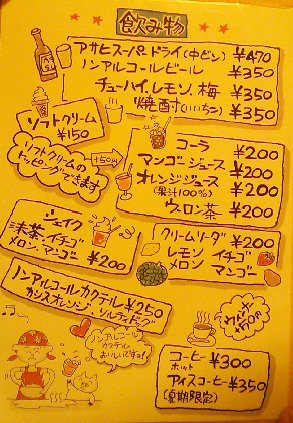 飲み物
アサヒスーパードライ(中ビン) ¥470
ノンアルコールビール ¥350
チューハイ.レモン.梅 ¥350
焼酎(いいちこ) ¥350
ソフトクリーム
¥150
ソフトクリームの
トッピングできます
+50円
コーラ ¥200
マンゴージュース ¥200
オレンジジュース ¥200
(果汁100%)
ウーロン茶 ¥200
シェイク
抹茶.イチゴ
メロン.マンゴー ¥200
クリームソーダ ¥200
レモン イチゴ
メロン マンゴー
ノンアルコールカクテル ¥250
カシスオレンジ・ソルティドッグ
ノンアルコール
カクテル
おいしいですよ!
コーヒー ¥300
ホット
アイスコーヒー ¥350
(夏期限定)